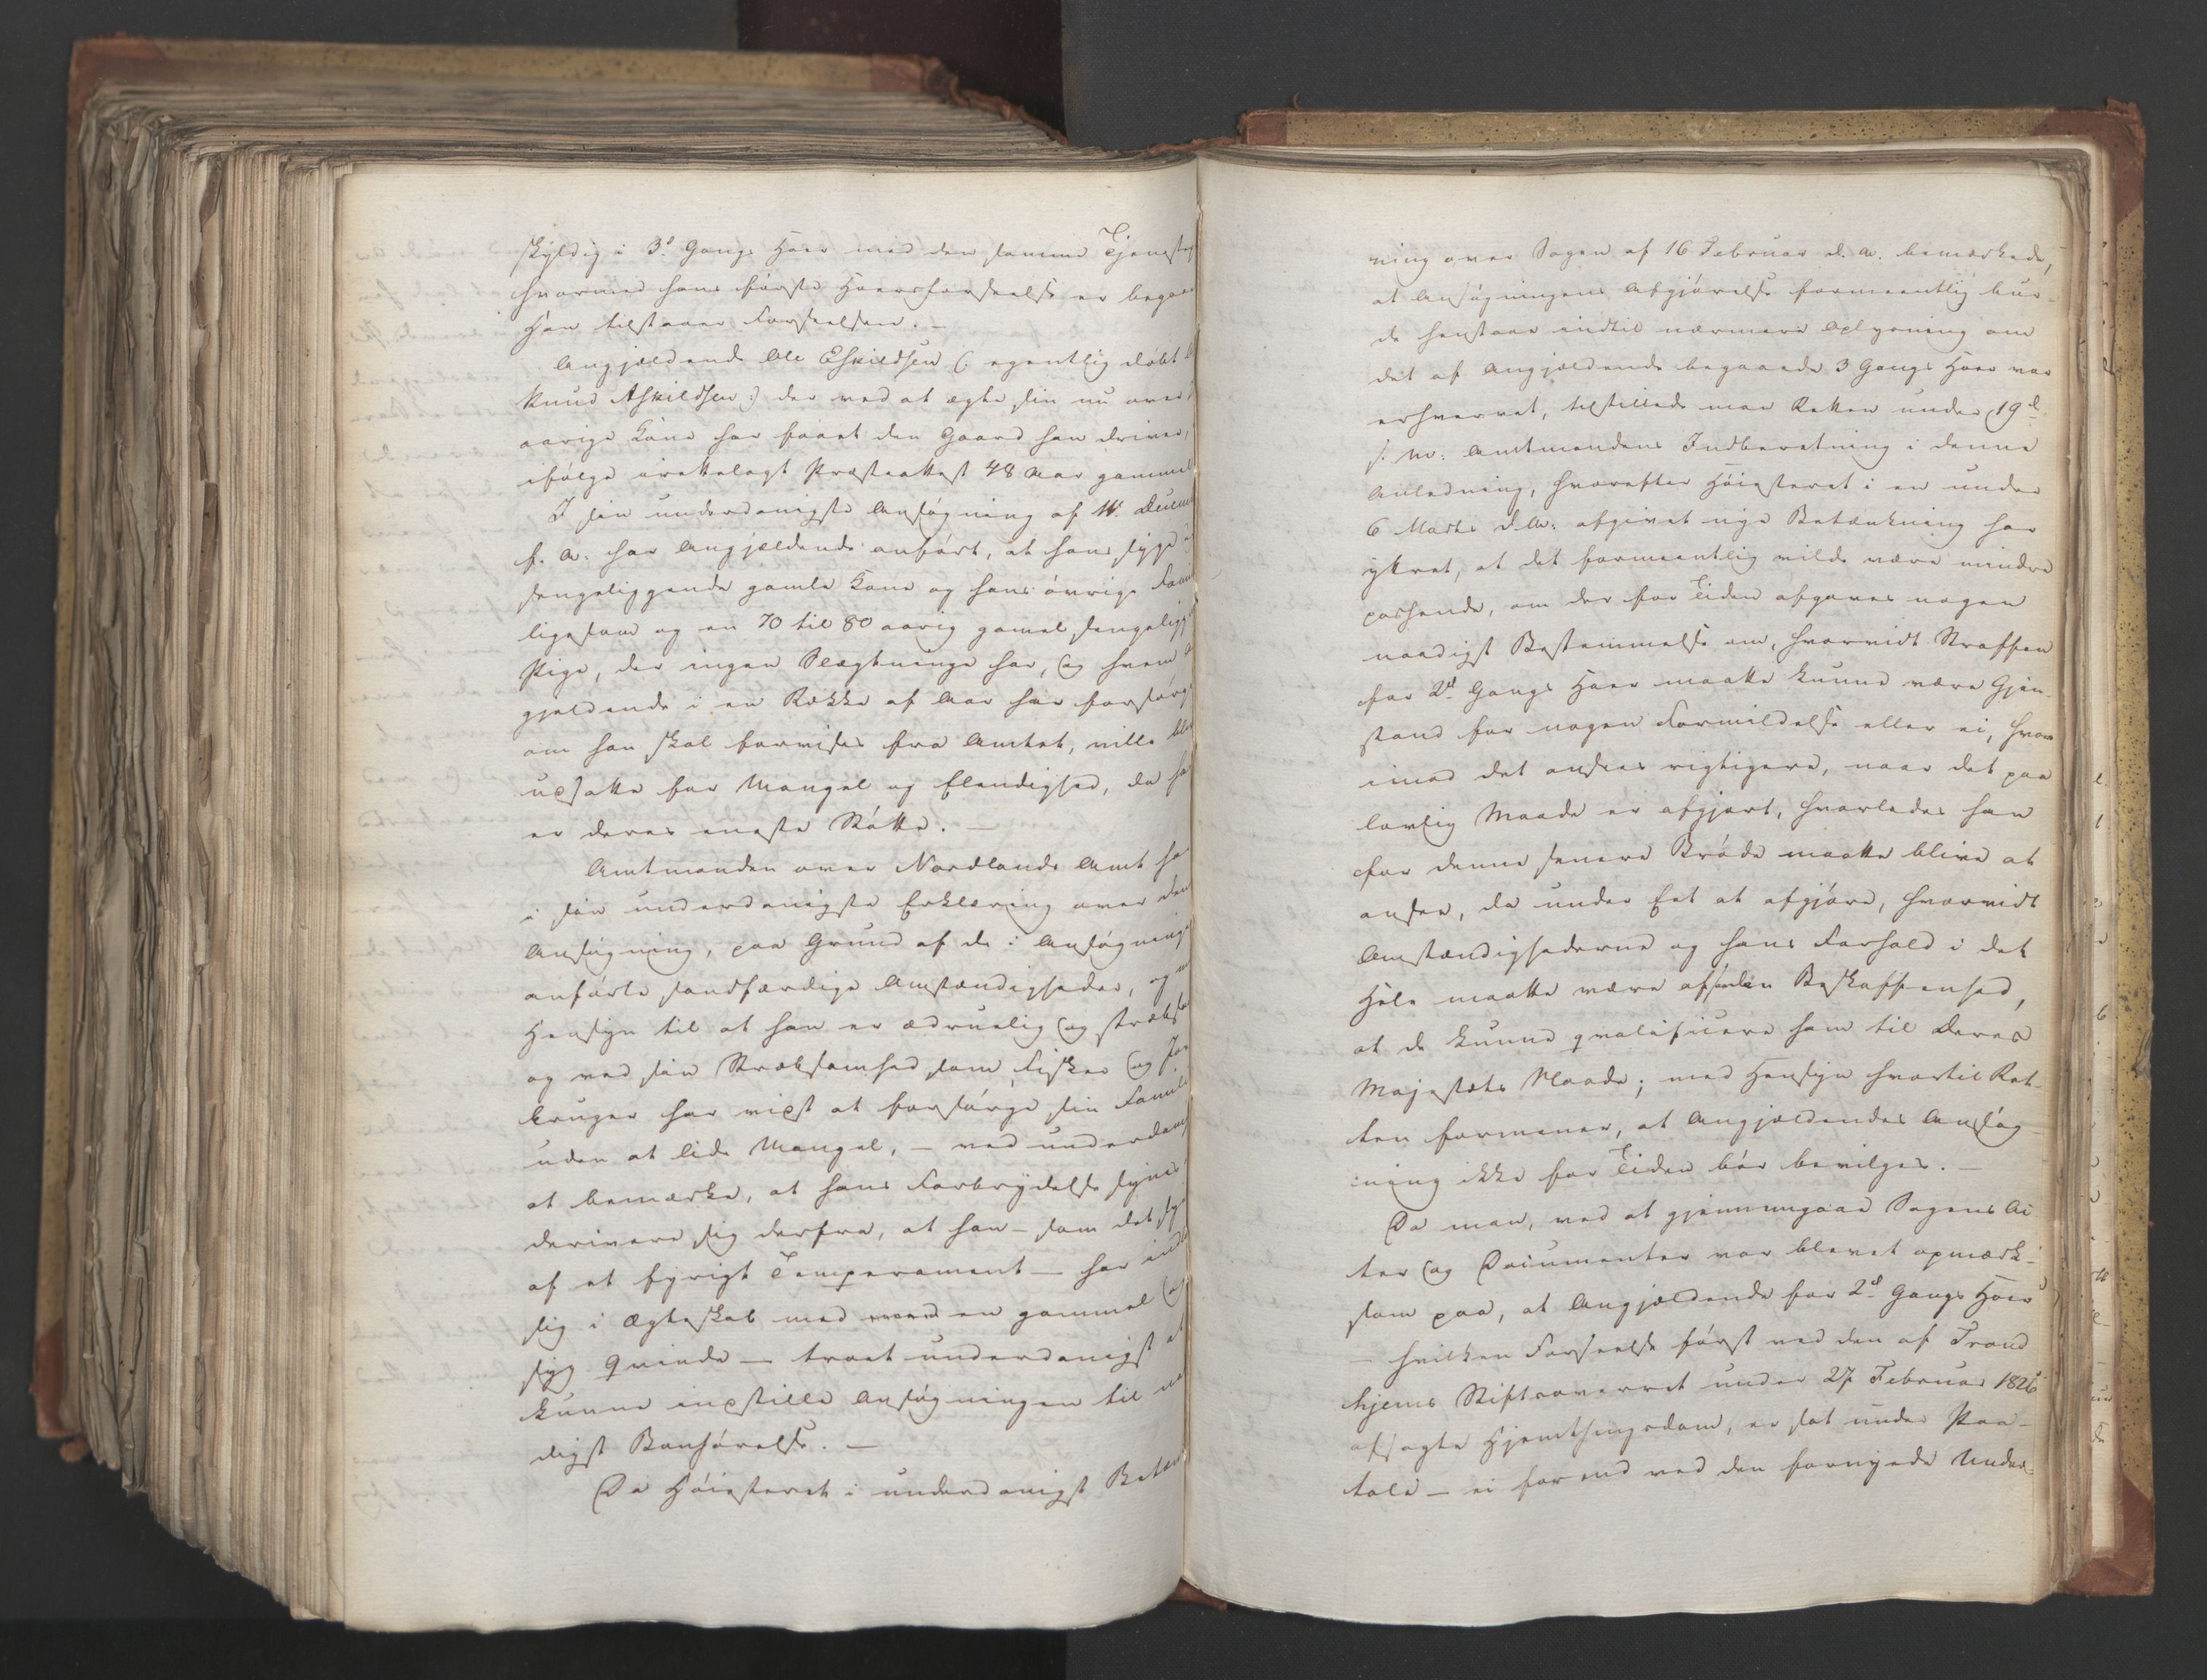 skyldig i 3d Gangs Hoer med den samme Tjeneste
hvormed hans første Hoersforseelse er begaaet
Han tilstaaer Forseelsen. –
Angjældende Ole Eskildsen (: egentlig døbt
Knud Askildsen :) der ved at ægte sin nu over
aarige Kone har faaet den Gaard han driver,
ifølge irettelagt Præsteattest 48 Aar gammel
I sin underdanigste Ansøgning af 11. Decemb
f. A. har Angjældende anført, at hans syge
sengeliggende gamle Kone og hans øvrige Fami
ligesom og en 70 til 80 aarig gamel sengeligg
Pige, der ingen Slægtninge har, og hvem A
gjeldende i en Række af Aar har forsørge
om han skal forvises fra Amtet, ville bliv
udsatte for Mangel og Elendighed, da ha
er deres eneste Støtte. –
Amtmanden over Nordlands Amt ha
i sin underdanigste Erklæring over den
Ansøgning, paa Grund af de i Ansøgning
anførte sandfærdige Omstændigheder, og m
Hensyn til at han er ædruelig og stræbs
og ved sin Stræbsomhed som Fisker og Jor
bruger har vidst at forsørge sin Famili
uden at lide Mangel, – ved underdan
at bemærke, at hans Forbrydelse synes
derivere sig derfra, at han – som det sy
af et fyrigt Temperament – har indl
sig i Ægteskab med en gammel og
syg Qvinde – troet underdanigst at
kunne indstille Ansøgningen til na
digst Bønhørelse. –
Da Høiesteret i underdanigst Betæn
ning over Sagen af 16 Februar d. A. bemærkede,
at Ansøgningens Afgjørelse formeentlig bur-
de henstaae indtil nærmere Oplysning om
det af Angjældende begaaede 3 Gangs Hoer var
erhvervet, tilstillede man Retten under 19d
s. M. Amtmandens Indberetning i denne
Anledning, hvorefter Høiesteret i en under
6 Marts d. A. afgivet nye Betænkning har
yttret, at det formeentlig vilde være mindre
passende, om der for Tiden afgaves nogen
naadigst Bestemmelse om, hvorvidt Straffen
for 2d Gangs Hoer maatte kunne være Gjen-
stand for nogen Formildelse eller ei, hvor-
imod det ansees rigtigere, naar det paa
lovlig Maade er afgjort, hvorledes han
for denne senere Brøde maatte blive at
ansee, da under Eet at afgjøre, hvorvidt
Omstændighederne og hans Forhold i det
Hele maatte være af saadan Beskaffenhed,
at de kunne qvalificere ham til Deres
Majestæts Naade; med Hensyn hvortil Ret-
ten formener, at Angjældendes Ansøg-
ning ikke for Tiden bør bevilges. –
Da man, ved at gjennemgaae Sagens Ac
ter og Documenter var blevet opmærk-
som paa, at Angjældende for 2d Gangs Hoer
– hvilken Forseelse først ved den af Trond
hjems Stiftsoverret under 27 Februar 1826
afsagte Hjemthingsdom, er sat under Paa-
tale – ei forend ved den fornyede Under-